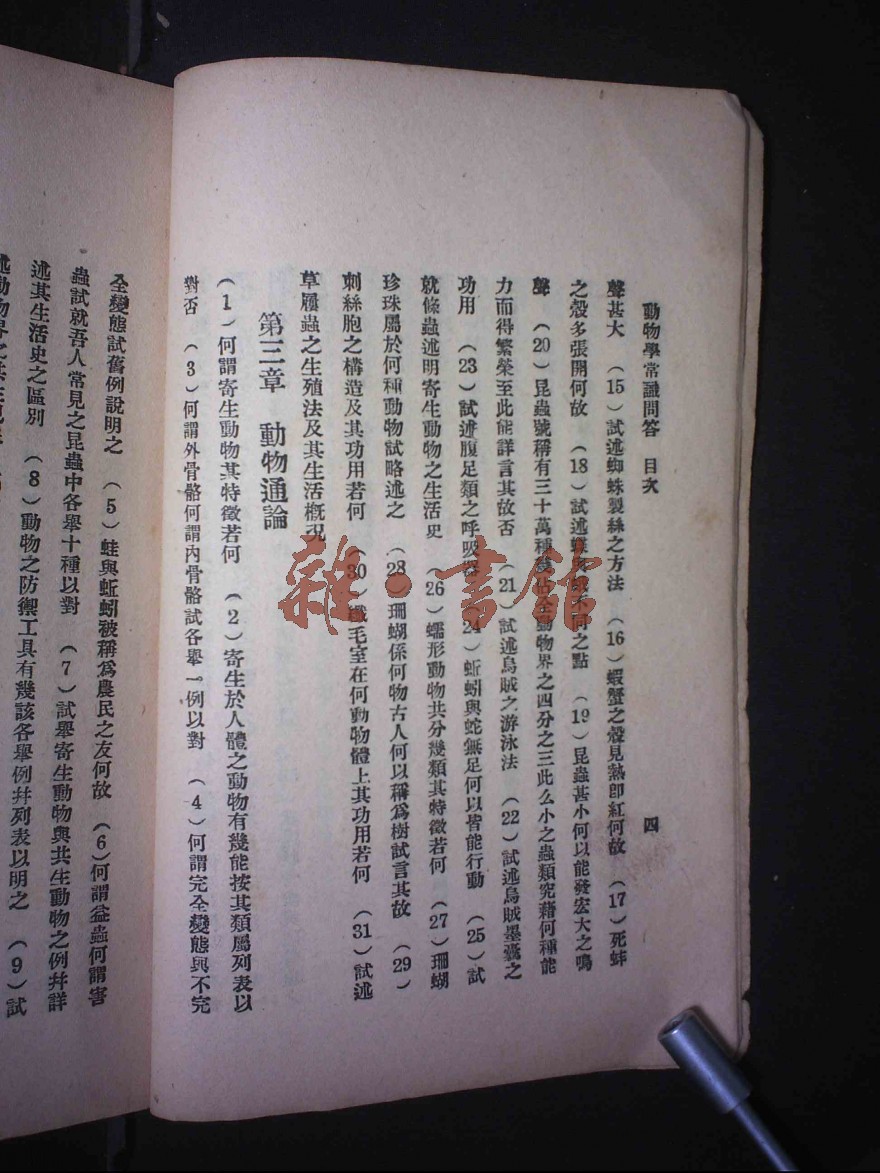 動物學常識問答 目次 四
聲甚大 (15)試述蜘蛛製絲之方法 (16)蝦蟹之殼見熱卽紅何故 (17)死蚌
之殼多張開何故 (18)試述蝶與蛾不同之點 (19)昆蟲甚小何以能發宏大之鳴
聲 (20)昆蟲號稱有三十萬種幾佔全動物界之四分之三此么小之蟲類究藉何種能
力而得繁榮至此能詳言其故否 (21)試述烏賊之游泳法 (22)試述烏賊墨囊之
功用 (23)試述腹足類之呼吸器 24)蚯蚓與蛇無足何以皆能行動 (25)試
就絛蟲述明寄生動物之生活史 (26)蠕形動物共分幾類其特徵若何 (27)珊蝴
珍珠屬於何種動物試略述之 (28)珊蝴係何物古人何以稱爲樹試言其故 (29)
刺絲胞之構造及其功用若何 (30)纖毛室在何動物體上其功用若何 (31)試述
草履蟲之生殖法及其生活概況
第三章 動物通論
(1)何謂寄生動物其特徵若何 (2)寄生於人體之動物有幾能按其類屬列表以
對否 (3)何謂外骨骼何謂內骨骼試各舉一例以對 (4)何謂完全變態與不完
全變態試舊例說明之 (5)蛙與蚯蚓被稱爲農民之友何故 (6)何謂益蟲何謂害
蟲試就吾人常見之昆蟲中各舉十種以對 (7)試舉寄生動物與共生動物之例幷詳
述其生活史之區別 (8)動物之防禦工具有幾該各舉例幷列表以明之 (9)試
述動物界之共生現
雜·書館